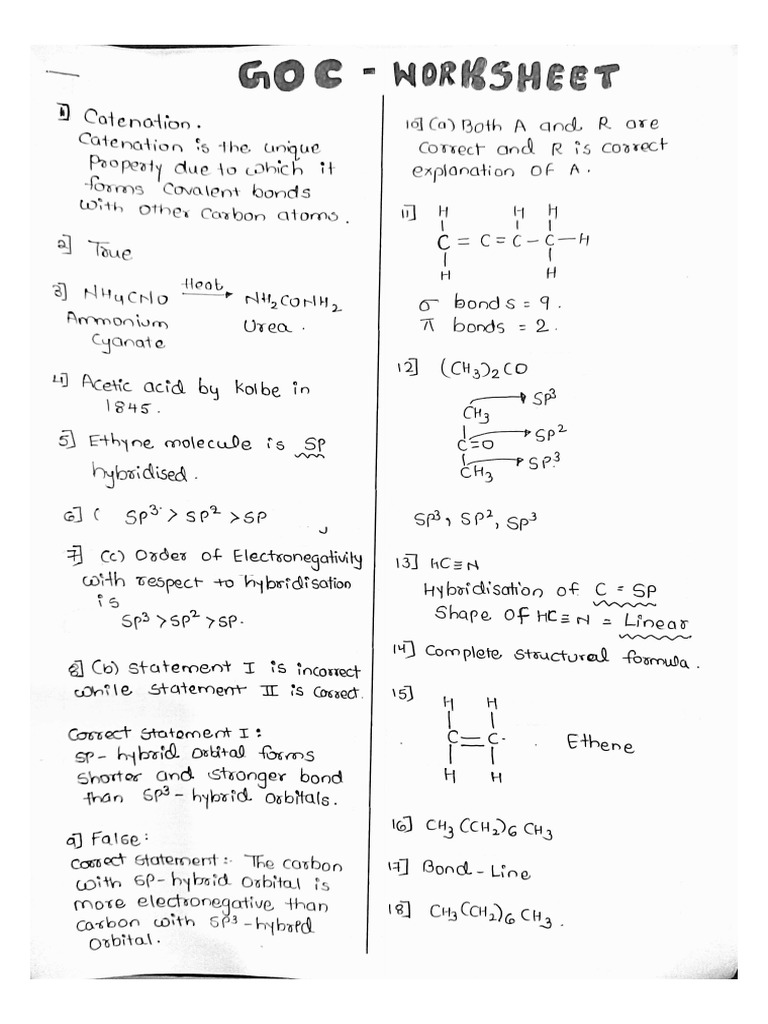 GOC - WORKSHEET
1] Catenation.
Catenation is the unique
Property due to which it
forms Covalent bonds
with other Carbon atoms.
2] True
3] NH4CNO Heat → NH2CONH2
Ammonium Urea.
Cyanate
4] Acetic acid by Kolbe in
1845.
5] Ethyne molecule is SP
hybridised.
6] ( SP3 > SP2 > SP
7] (c) Order of Electronegativity
with respect to hybridisation
is
SP3 > SP2 > SP.
8] (b) Statement I is incorrect
while Statement II is correct.
Correct Statement I:
SP- hybrid Orbital forms
Shorter and stronger bond
than SP3- hybrid Orbitals.
9] False:
Correct Statement:- The carbon
with SP-hybrid Orbital is
more electronegative than
carbon with SP3-hybrid
Orbital.
10] (a) Both A and R are
correct and R is correct
explanation OF A.
11] H H H
C = C = C - C - H
H H
σ bonds = 9.
π bonds = 2.
12] (CH3)2 CO
CH3 → SP3
C=O → SP2
CH3 → SP3
SP3, SP2, SP3
13] HC≡N
Hybridisation of C = SP
Shape OF HC≡N = Linear
14] Complete structural formula.
15] H H
C = C. Ethene
H H
16] CH3 (CH2)6 CH3
17] Bond-Line
18] CH3(CH2)6 CH3.